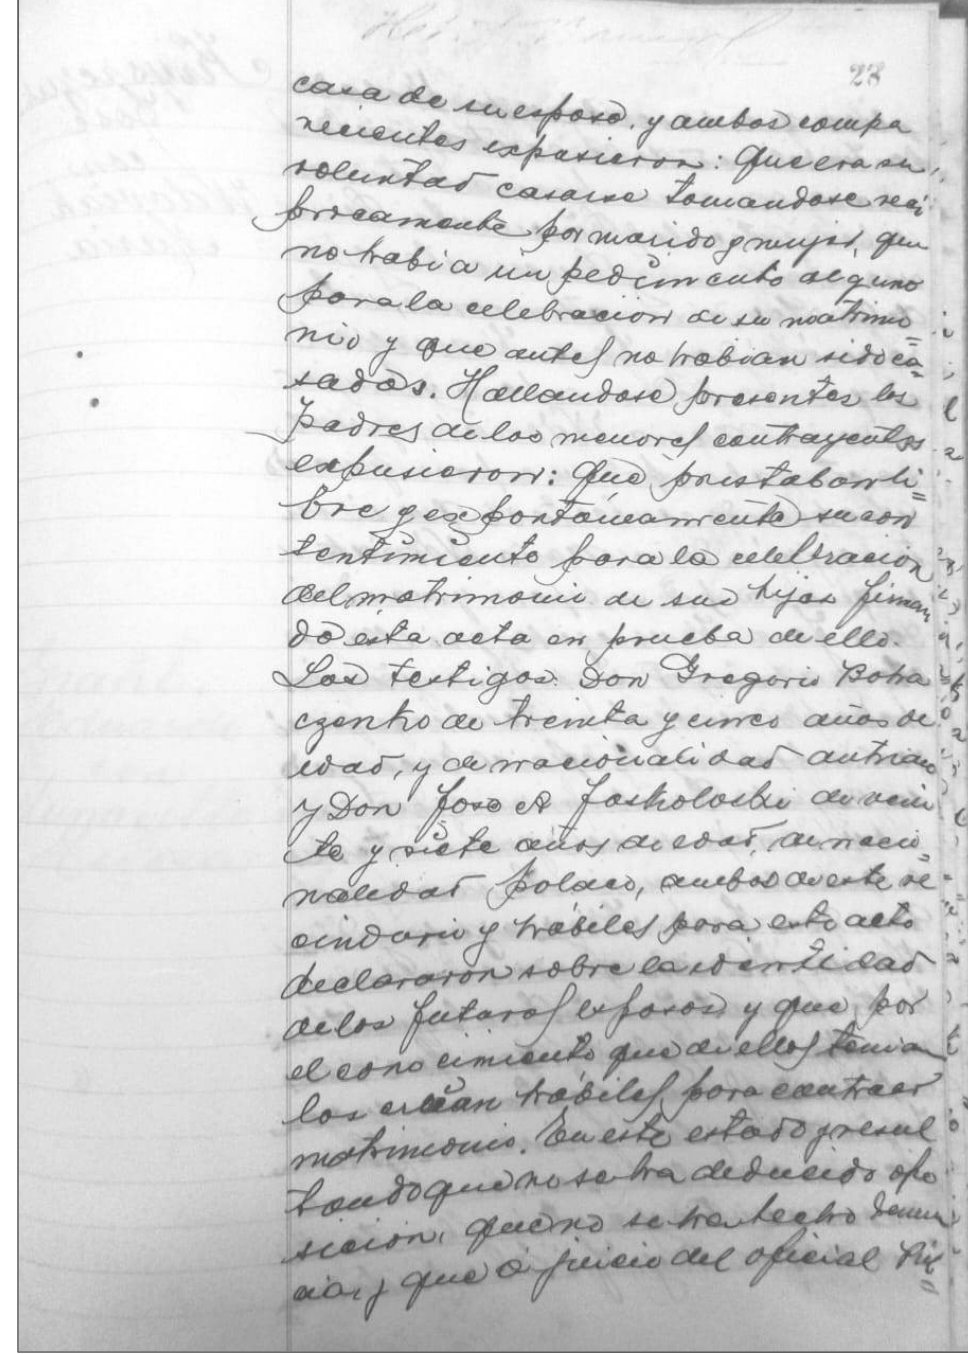 23
casa de su esposo, y ambos compa
recientes expusieron: Que era su
voluntad casarse tomandose reci
procamente por marido y mujer, que
no habia impedimento alguno
para la celebracion de su matrimo=
nio y que antes no habian sido ca=
sados. Hallandose presentes los
padres de los menores contrayentes
expusieron: Que prestaban li=
bre y expontáneamente su con
sentimiento para la celebracion
del matrimonio de sus hijos firman
do esta acta en prueba de ello.
Los testigos: Don Gregorio Boha
czenko de treinta y cinco años de
edad, y de nacionalidad austriaco
y Don José A Joskoloski de vein
te y siete años de edad, de nacio=
nalidad polaco, ambos de este ve
cindario y hábiles para este acto
declararon sobre la identidad
de los futuros esposos y que por
el conocimiento que de ellos tenian
los creian hábiles para contraer
matrimonio. En este estado y resul
tando que no se ha deducido opo
sicion, que no se ha hecho denun
cia, y que á juicio del oficial Pú=